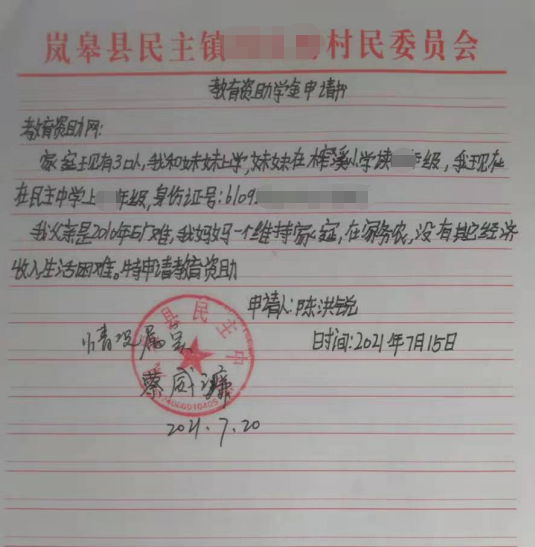 岚皋县民主镇 村民委员会
教育资助学金申请书
教育资助网:
家庭现有3口人,我和妹妹上学,妹妹在 溪小学读 年级,我现在
在民主中学上 年级,身份证号:6109
我父亲是2010年矿难,我妈妈一个维持家庭,在家务农,没有其它经济
收入生活困难。特申请教育资助
申请人:陈洪锐
情况属实
日时间:2021年7月15日
蔡威
2021.7.20
县民主中